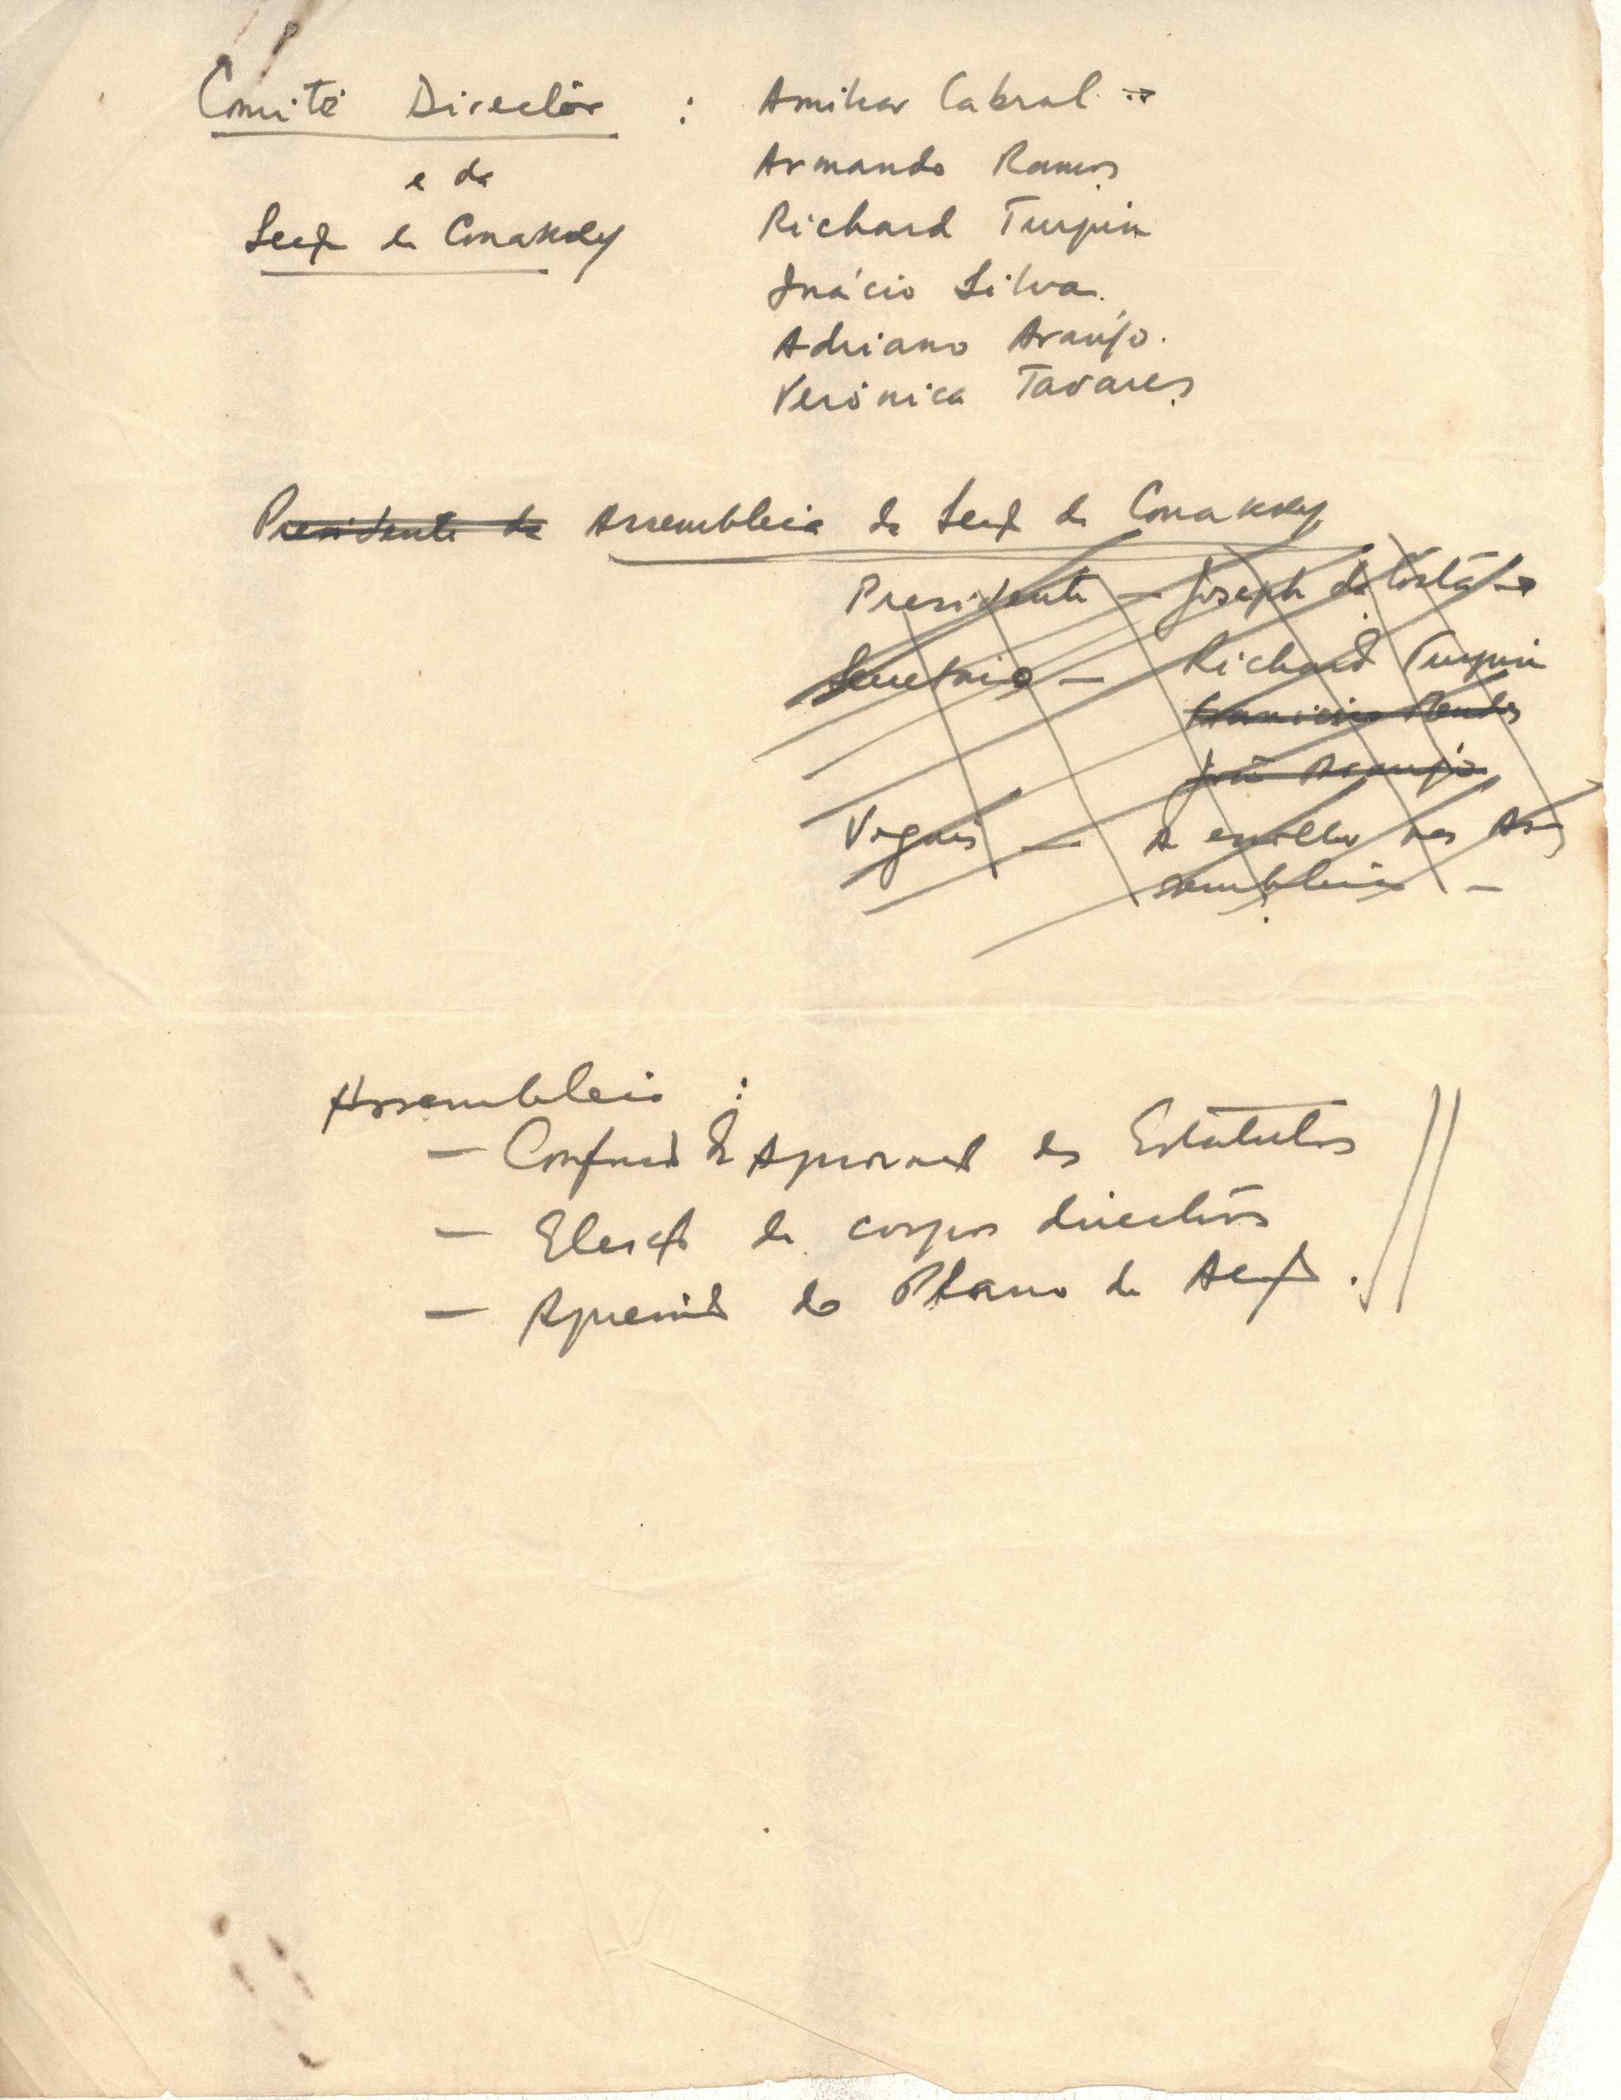 Comité Director : Amílcar Cabral
e da
Secç de Conakry
Armando Ramos
Richard Turpin
Inácio Silva.
Adriano Araújo.
Verónica Tavares
Presidente da Assembleia da Secç de Conakry
Presidente — Joseph da Costa
Secretário — Richard Turpin
Mendes
João Araujo
Vogais — A escolher nas As-
sembleia —
Assembleia :
— de Aprovaç dos Estatutos
— Eleição de corpos directivos
— do Plano de Acção.